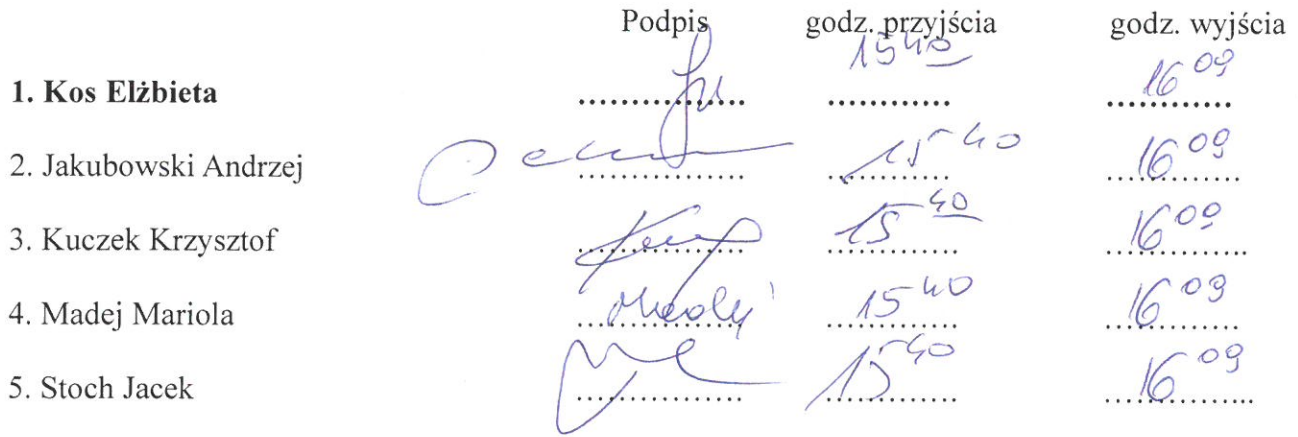 Podpis godz. przyjścia godz. wyjścia
1. Kos Elżbieta .................. 15 40 ............. 16 09 .............
2. Jakubowski Andrzej .................. 15 40 ............. 16 09 .............
3. Kuczek Krzysztof .................. 15 40 ............. 16 09 .............
4. Madej Mariola Madej .................. 15 40 ............. 16 09 .............
5. Stoch Jacek .................. 15 40 ............. 16 09 .............